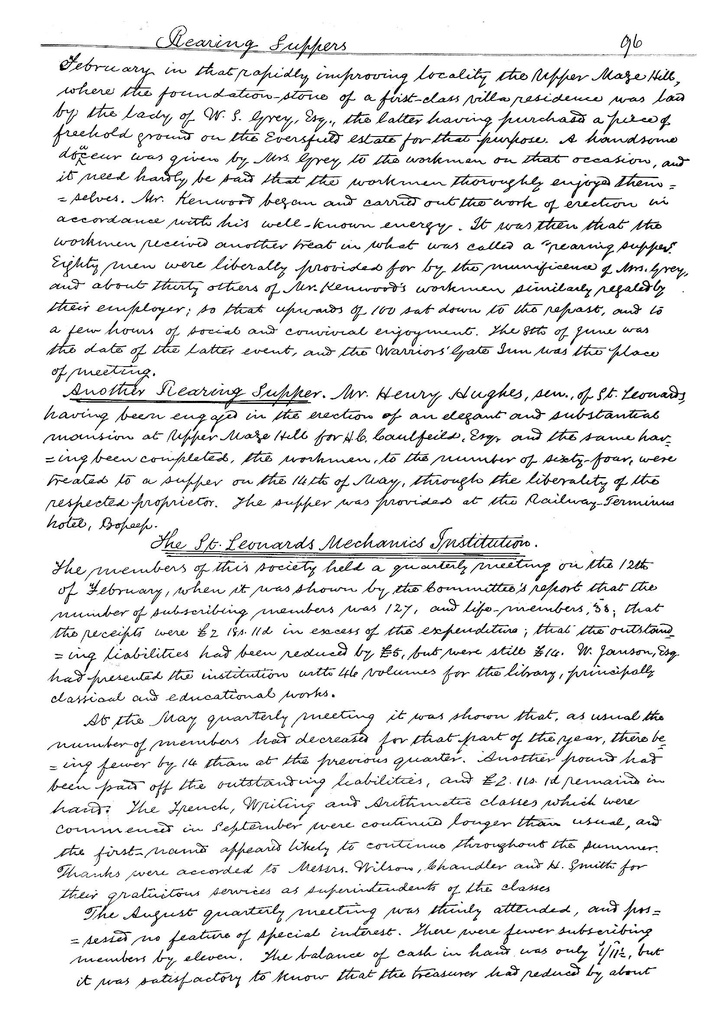 Rearing Suppers 96
February in that rapidly improving locality the Upper Maze Hill,
where the foundation-stone of a first-class villa residence was laid
by the lady of W. S. Grey, Esq., the latter having purchased a piece of
freehold ground on the Eversfield estate for that purpose. A handsome
douceur was given by Mrs. Grey to the workmen on that occasion, and
it need hardly be said that the workmen thoroughly enjoyed them=
=selves. Mr. Kenwood began and carried out the work of erection in
accordance with his well-known energy. It was then that the
workmen received another treat in what was called a "rearing supper".
Eighty men were liberally provided for by the munificence of Mrs. Grey,
and about thirty others of Mr. Kenwood's workmen similarly regaled by
their employer; so that upwards of 100 sat down to the repast, and to
a few hours of social and convivial enjoyment. The 8th of June was
the date of the latter event, and the Warriors' Gate Inn was the place
of meeting.
Another Rearing Supper. Mr. Henry Hughes, sen., of St. Leonards,
having been engaged in the erection of an elegant and substantial
mansion at Upper Maze Hill for H. C. Caulfeild, Esqr. and the same hav=
=ing been completed, the workmen, to the number of sixty-four, were
treated to a supper on the 14th of May, through the liberality of the
respected proprietor. The supper was provided at the Railway-Terminus
hotel, Bopeep.
The St. Leonards Mechanics Institution.
The members of this society held a quarterly meeting on the 12th
of February, when it was shown by the Committee's report that the
number of subscribing members was 127, and life-members, 38; that
the receipts were £2 18s. 11d in excess of the expenditure; that the outstand=
=ing liabilities had been reduced by £5, but were still £14. W. Janson, Esq.
had presented the institution with 46 volumes for the library, principally
classical and educational works.
At the May quarterly meeting it was shown that, as usual the
number of members had decreased for that part of the year, there be=
=ing fewer by 14 than at the previous quarter. Another pound had
been paid off the outstanding liabilities, and £2. 11s. 1d remained in
hand. The French, Writing and Arithmetic classes which were
commenced in September were continued longer than usual, and
the first-named appeared likely to continue throughout the summer.
Thanks were accorded to Messrs. Wilson, Chandler and H. Smith for
their gratuitous services as superintendents of the classes
The August quarterly meeting was thinly attended, and pos=
=sessed no feature of special interest. There were fewer subscribing
members by eleven. The balance of cash in hand was only 1/11½, but
it was satisfactory to know that the treasurer had reduced by about